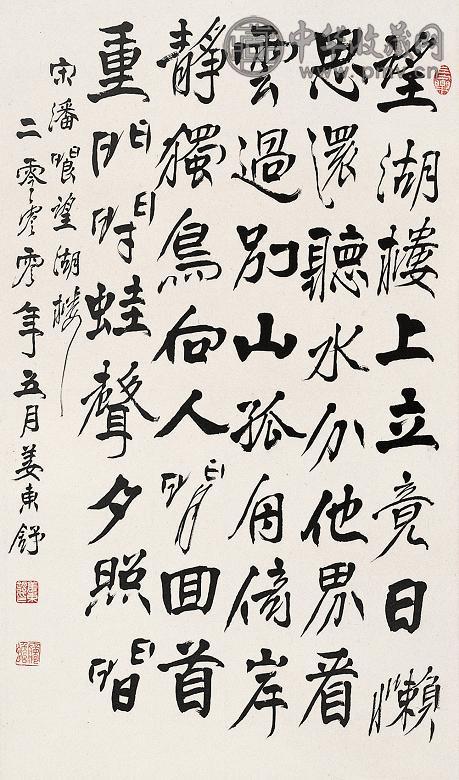 望湖樓上立竟日懶
思還聽水分他界看
雲過別山孤舟倚岸
靜獨鳥向人閒回首
重門閉蛙聲夕照間
宋潘閬望湖樓
二零零零年五月姜東舒
中华收藏网